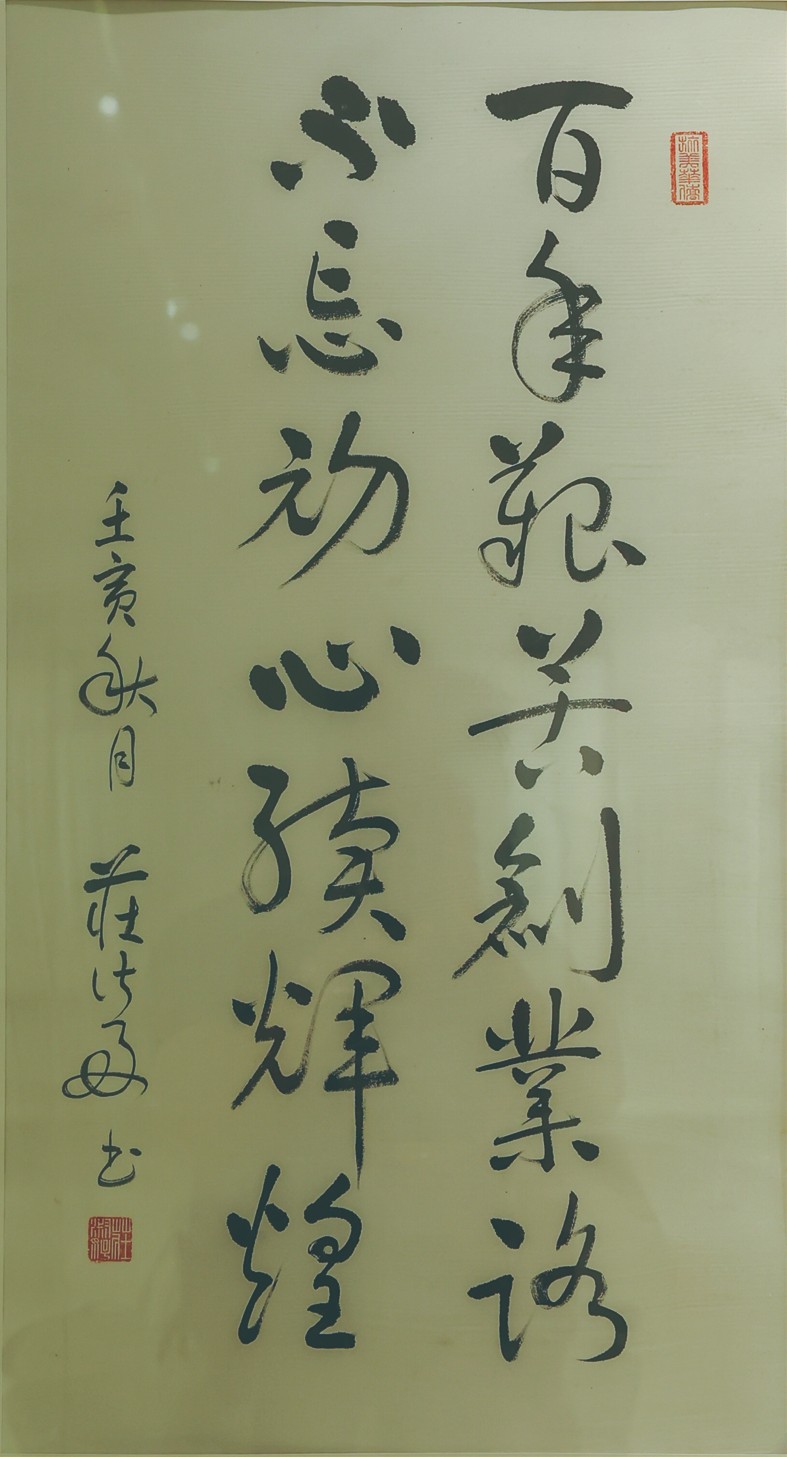 百年艱苦創業路
不忘初心續輝煌
壬寅秋月 莊
書